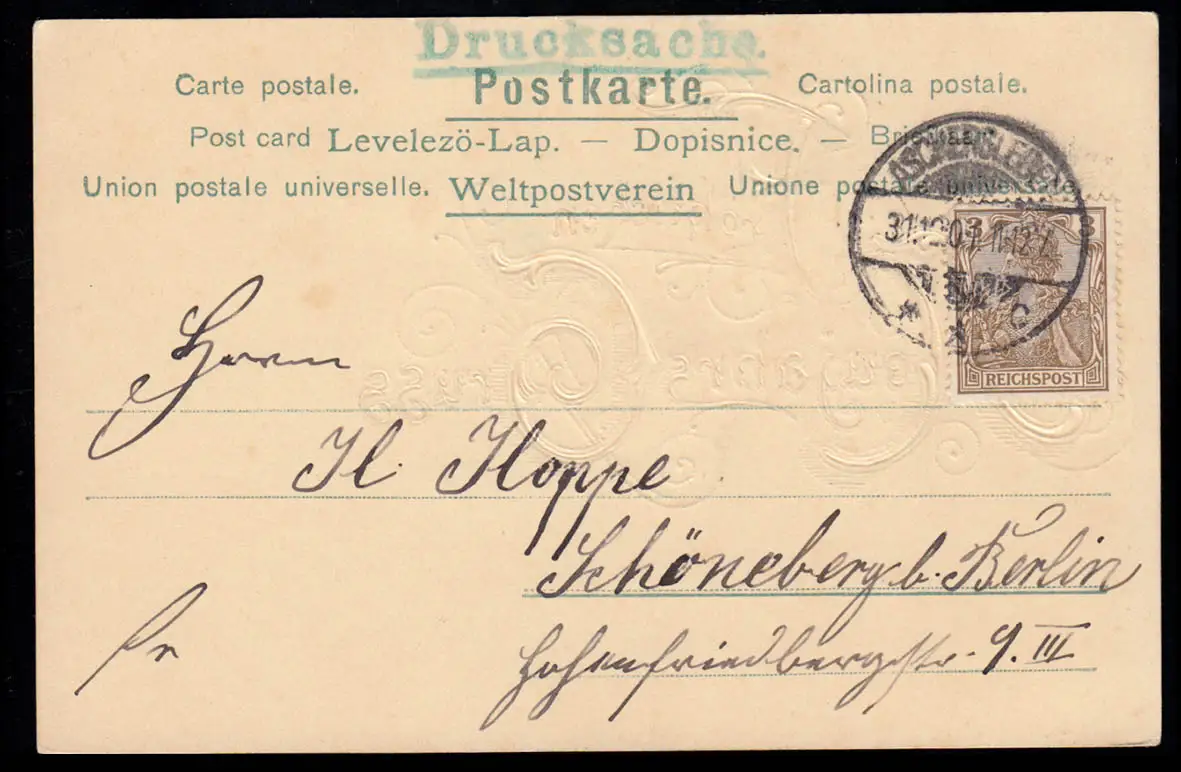 Drucksache.
Carte postale. Postkarte. Cartolina postale.
Post card Levelezö-Lap. — Dopisnice. —
Union postale universelle. Weltpostverein Unione postale universale
3 3
REICHSPOST
Herrn
H. Hoppe
Schöneberg b. Berlin
Hohenfriedbergstr. 9. III